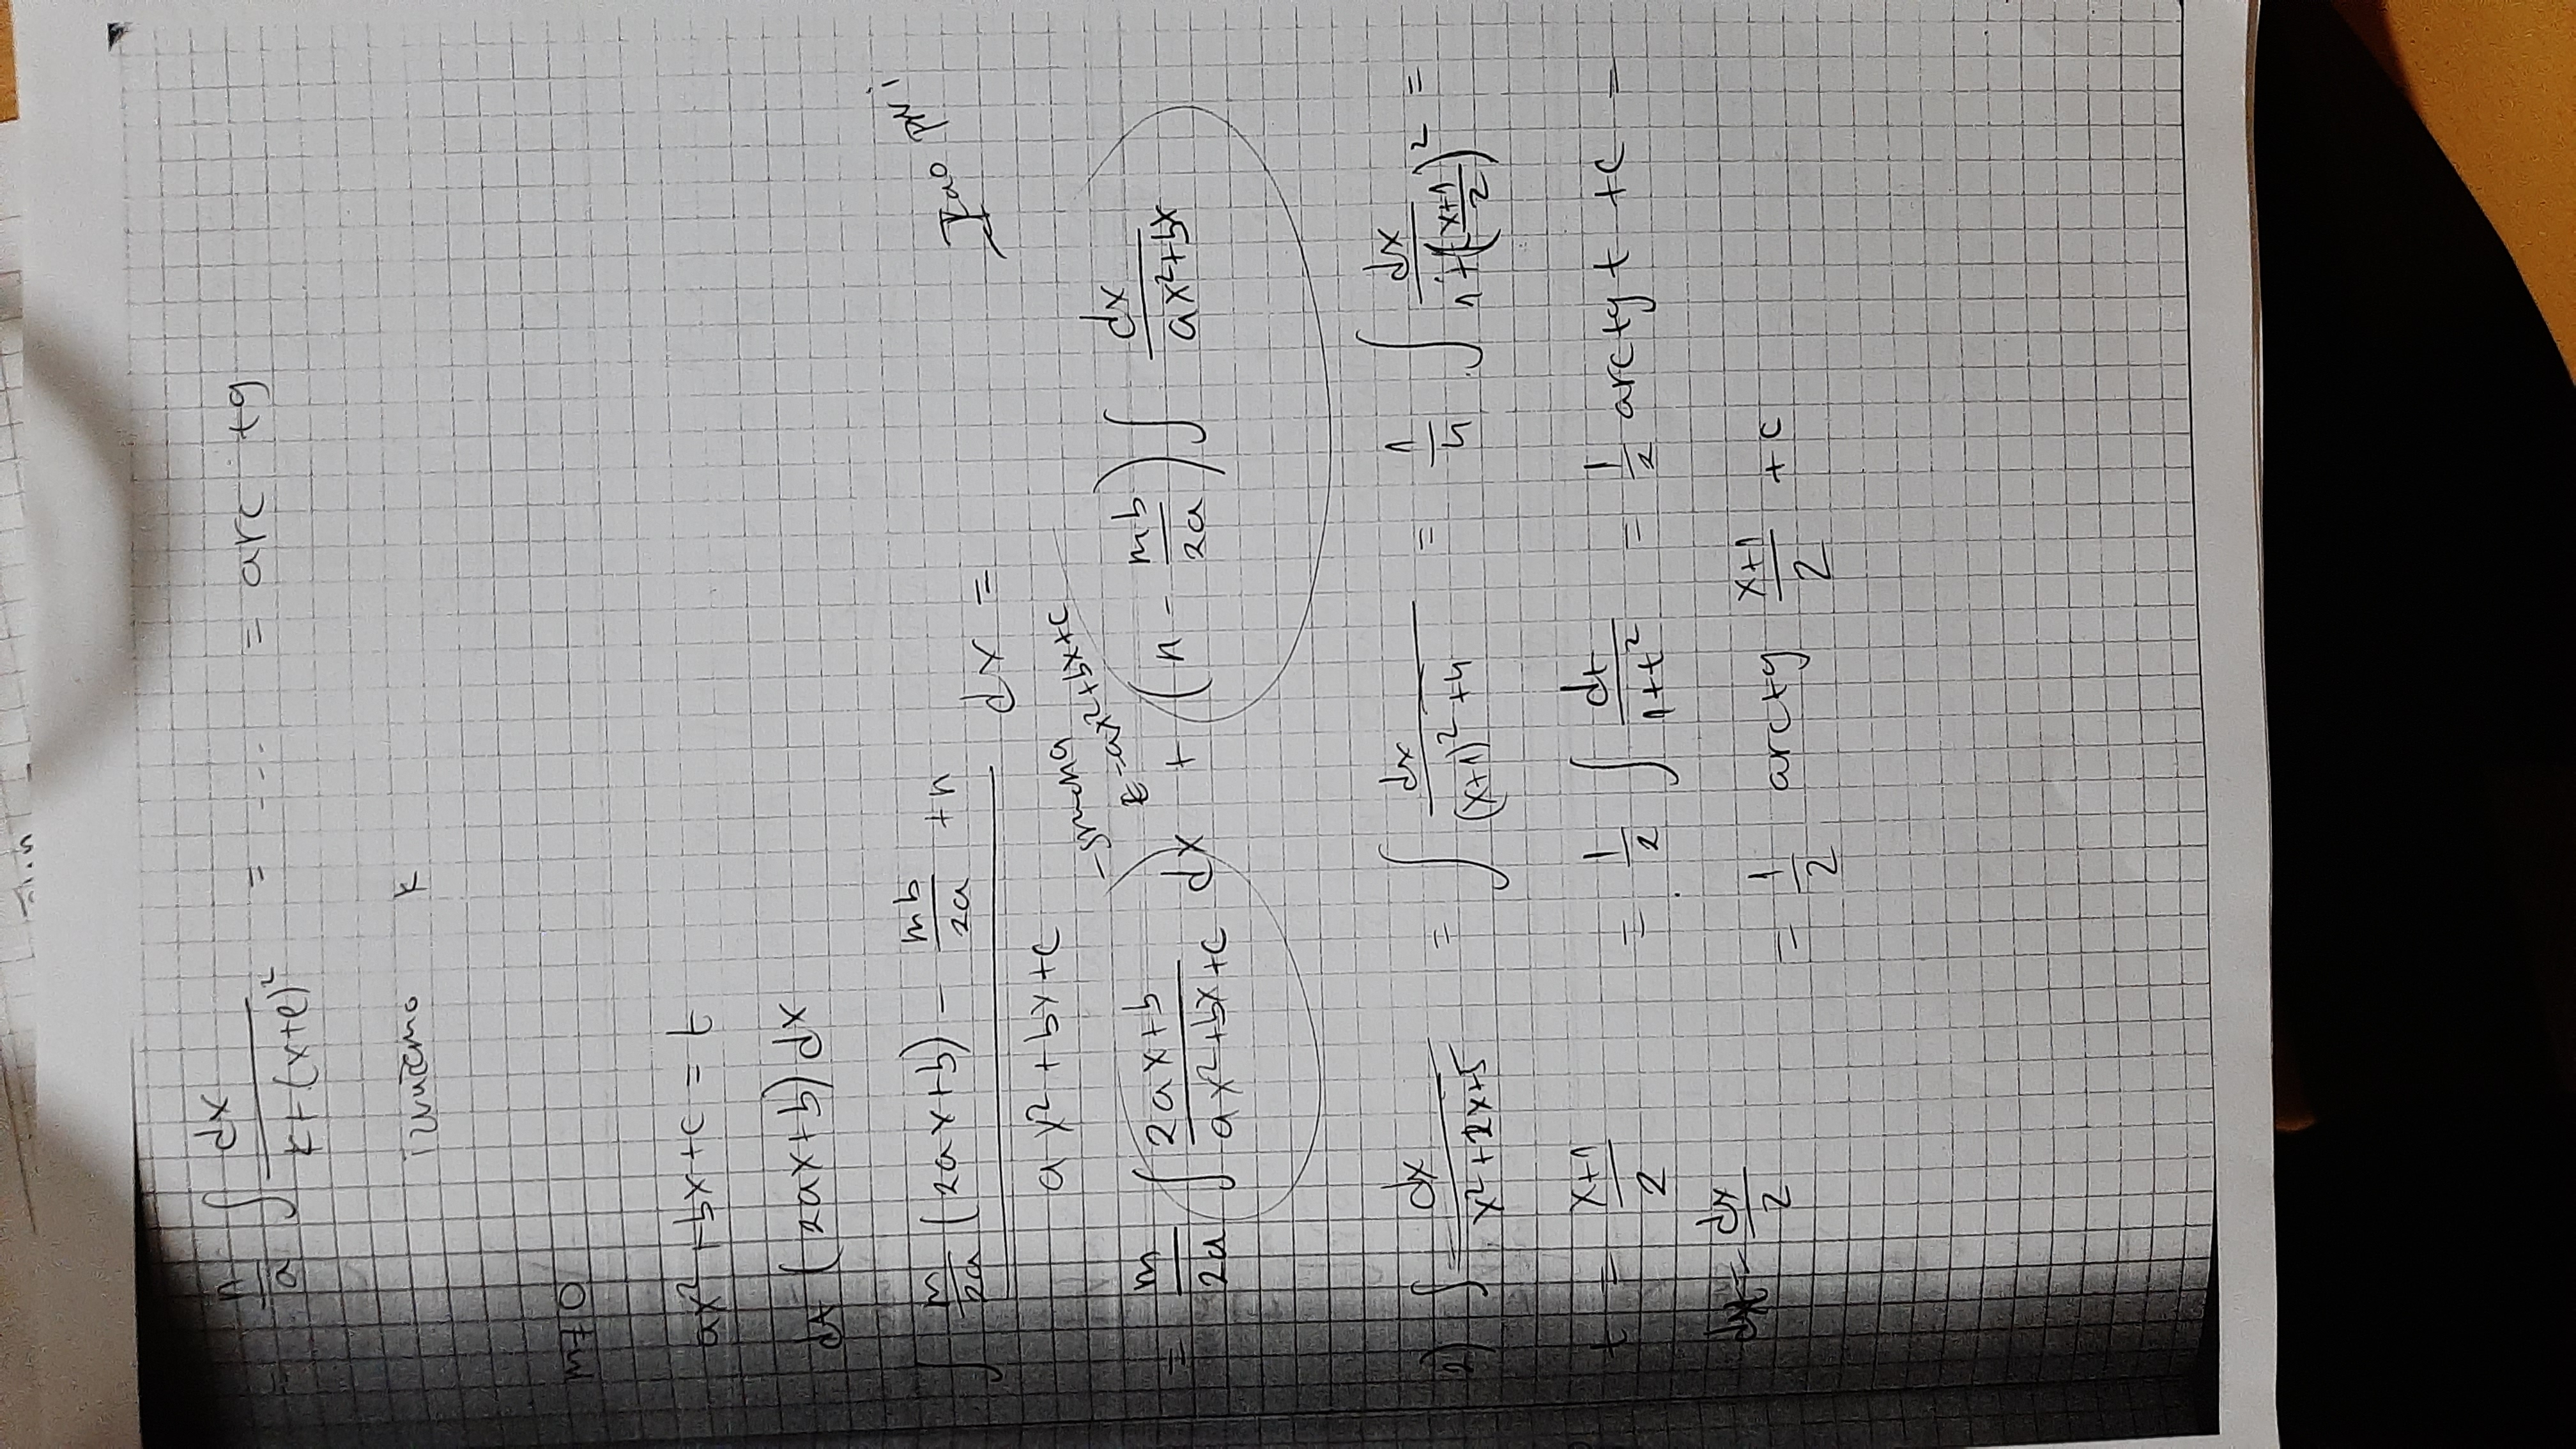 = n/a ∫ dx/(k+(x+e)²) = ... = arc tg
izvučemo k
m≠0
ax²+bx+c = t
dt (2ax+b) dx
∫ (m/2a (2ax+b) - mb/2a + n)/(ax²+bx+c) dx =
Kao prvi
- smena
t=ax²+bx+c
= m/2a ∫ (2ax+b)/(ax²+bx+c) dx + (n - mb/2a) ∫ dx/(ax²+bx)
2) ∫ dx/(x²+2x+5) = ∫ dx/((x+1)²+4) = 1/4 ∫ dx/(1+((x+1)/2)²) =
t = (x+1)/2 = 1/2 ∫ dt/(1+t²) = 1/2 arctg t + c =
dt = dx/2 = 1/2 arctg (x+1)/2 + c